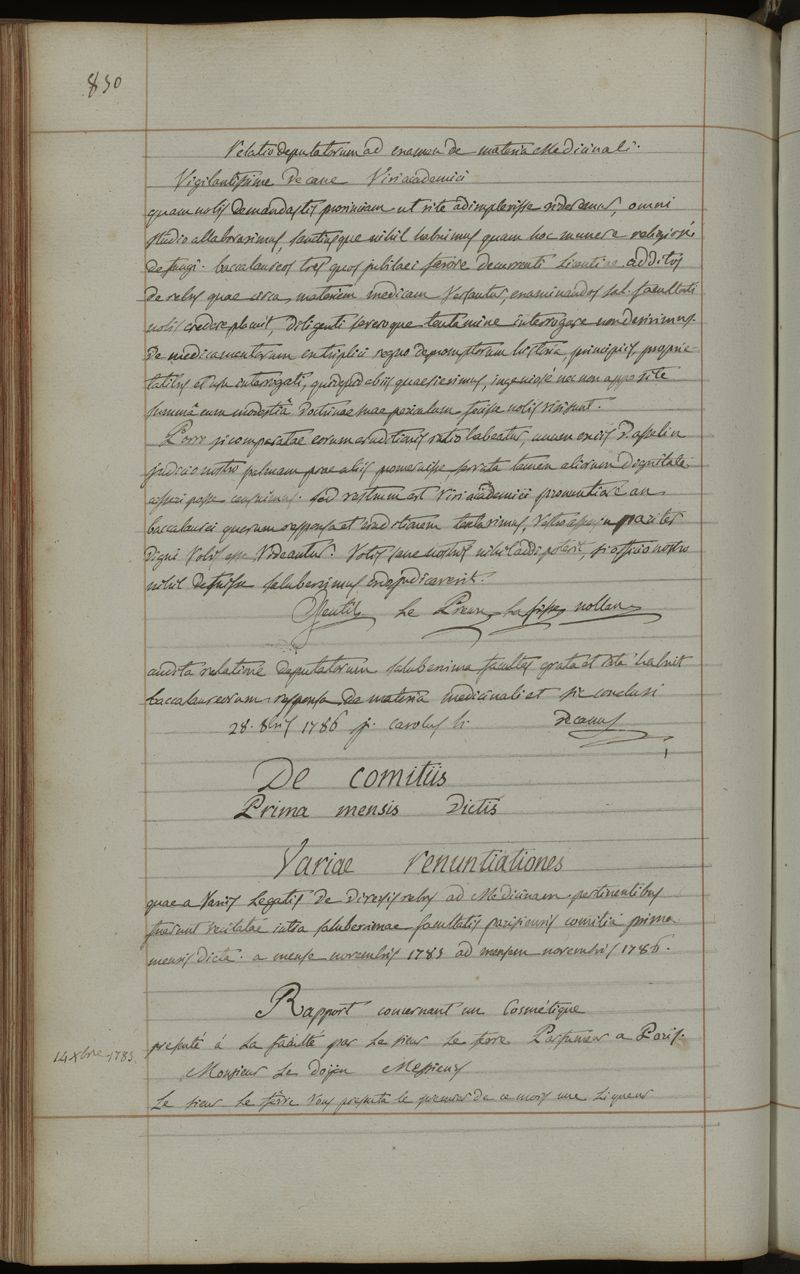 830
Relatio deputatorum ad examen de materia Medicinali.
Vigilantissime Decane Viri academici
quam nobis demandastis provinciam ut rite adimplevisse videremur, omni
studio allaboravimus, sanctiusque nihil habuimus quam hoc munere religiosè
defungi. baccalaureos tres quos jubilaei tempore decurrenti Licentiae additos
de rebus quae circa materiem medicam versantur, examinandos sal. facultati
nobis credere placuit, diligenti severoque tentamine interrogare non desivimus.
de medicamentorum en triplici regno depromptorum historia, principiis, proprie-
tatibus et usu interrogati, quidquid ab iis quaesierimus, ingeniosè nec non apposite
summâ cum modestiâ doctrinae suae periculum fecisse nobis visi sunt.
Porro si comparatae eorum eruditionis ratio habeatur, unum ex iis D. asselin
judicio nostro palmam prae aliis promeruisse, servata tamen aliorum dignitate
asseri posse censuimus. sed vestrum est Viri academici pronuntiare an
baccalaurei quorum responsa et eruditionem tentavimus, pariter
digni Vobis esse Videantur. Votis sane nostris nihil addi poterit, si officio nostro
nihil defuisse saluberrimus ordo judicaverit.
Gentil Le Preux Lafisse nollan
audita relatione deputatorum saluberrima facultas grata et rata habuit
baccalaureorum responsa de materia medicinali et sic conclusi
28. 8bris 1786 j. carolus h. decanus
De comitiis
Prima mensis Dictis
Variae renuntiationes
quae a Variis Legatis de diversis rebus ad Medicinam pertinentibus
fuerunt recitatae intra saluberrimae facultatis parisiensis comitia prima
mensis dicta. a mense novembris 1785 ad mensem novembris 1786.
Rapport concernant un Cosmétique
presenté à La faculté par Le sieur Le fevre Parfumeur a Paris.
14 xbre 1785
Monsieur Le Doÿen Messieurs
Le sieur Le fevre Vous presenta le premier de ce mois une Liqueur